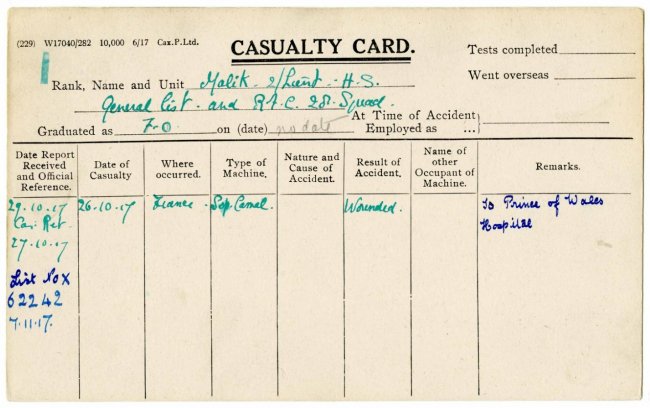 (229) W17040/282 10,000 6/17 Cax.P.Ltd.
CASUALTY CARD.
Tests completed
Went overseas
Rank, Name and Unit Malik - 2/Lieut - H.S.
General List - and R.F.C. 28. Squad.
At Time of Accident
Graduated as F.O. on (date) no date Employed as ...
Date Report Received and Official Reference.
Date of Casualty
Where occurred.
Type of Machine.
Nature and Cause of Accident.
Result of Accident.
Name of other Occupant of Machine.
Remarks.
29.10.17 26-10-17 France. Sop. Camel. Wounded. To Prince of Wales
Cas. Ret. Hospital
27.10.17
List No X
62242
7.11.17.